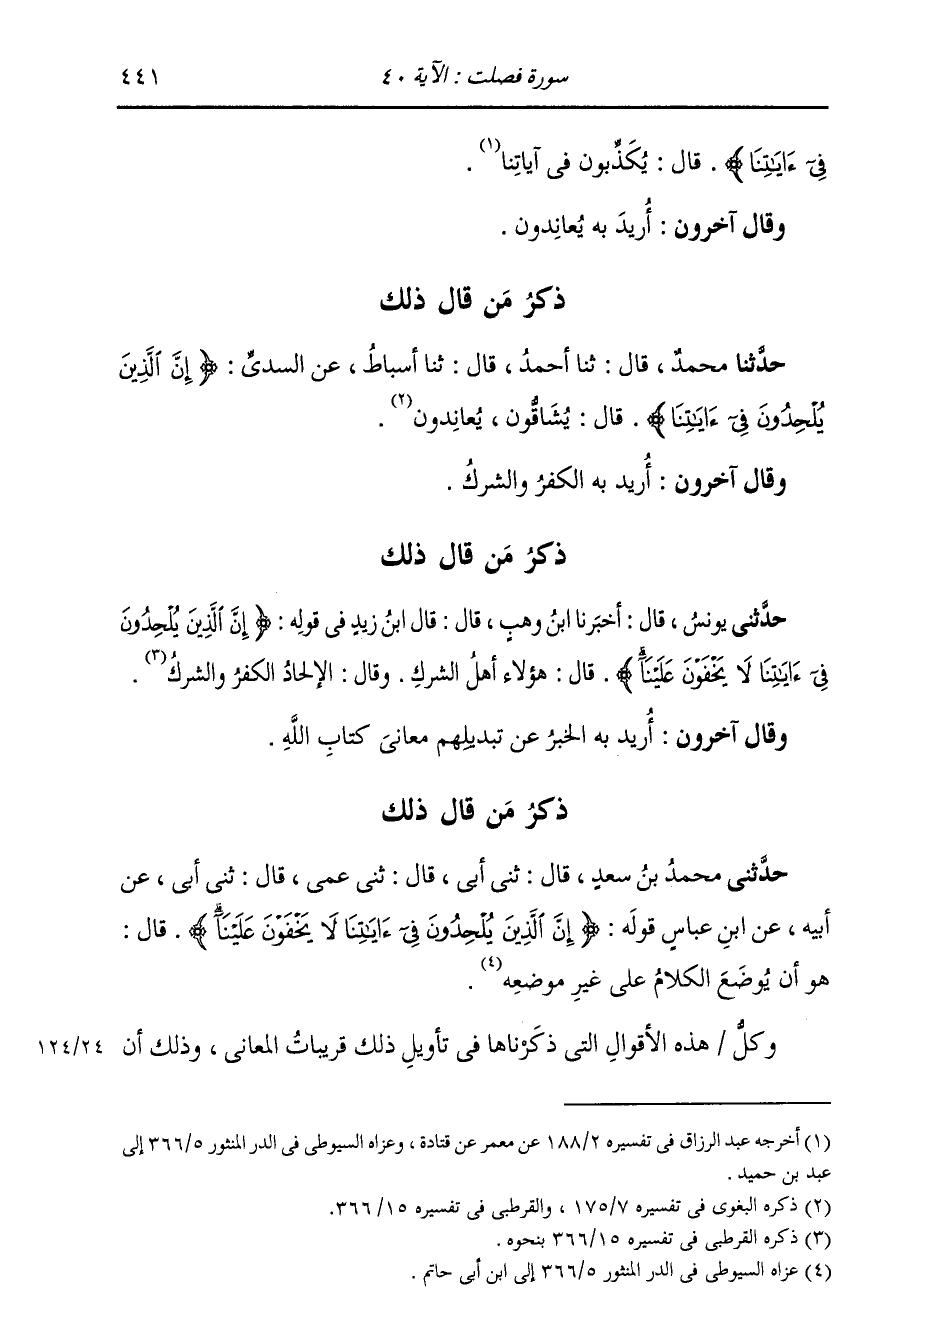 سورة فصلت : الآية ٤٠ ٤٤١
فِىٓ ءَايَٰتِنَا ﴾ . قال : يُكَذِّبون فى آياتِنا(١) .
وقال آخرون : أُريدَ به يُعانِدون .
ذكرُ مَن قال ذلك
حدَّثنا محمدٌ ، قال : ثنا أحمدُ ، قال : ثنا أسباطُ ، عن السدىِّ : ﴿ إِنَّ ٱلَّذِينَ
يُلْحِدُونَ فِىٓ ءَايَٰتِنَا ﴾ . قال : يُشَاقُّون ، يُعانِدون(٢) .
وقال آخرون : أُريد به الكفرُ والشركُ .
ذكرُ مَن قال ذلك
حدَّثنى يونسُ ، قال : أخبَرنا ابنُ وهبٍ ، قال : قال ابنُ زيدٍ فى قولِه : ﴿ إِنَّ ٱلَّذِينَ يُلْحِدُونَ
فِىٓ ءَايَٰتِنَا لَا يَخْفَوْنَ عَلَيْنَآ ﴾ . قال : هؤلاء أهلُ الشركِ . وقال : الإلحادُ الكفرُ والشركُ(٣) .
وقال آخرون : أُريد به الخبرُ عن تبديلِهم معانىَ كتابِ اللَّهِ .
ذكرُ مَن قال ذلك
حدَّثنى محمدُ بنُ سعدٍ ، قال : ثنى أبى ، قال : ثنى عمى ، قال : ثنى أبى ، عن
أبيه ، عن ابنِ عباسٍ قولَه : ﴿ إِنَّ ٱلَّذِينَ يُلْحِدُونَ فِىٓ ءَايَٰتِنَا لَا يَخْفَوْنَ عَلَيْنَآ ﴾ . قال :
هو أن يُوضَعَ الكلامُ على غيرِ موضعِه(٤) .
وكلُّ / هذه الأقوالِ التى ذكَرْناها فى تأويلِ ذلك قريباتُ المعانى ، وذلك أن ١٢٤/٢٤
(١) أخرجه عبد الرزاق فى تفسيره ١٨٨/٢ عن معمر عن قتادة ، وعزاه السيوطى فى الدر المنثور ٣٦٦/٥ إلى
عبد بن حميد .
(٢) ذكره البغوى فى تفسيره ١٧٥/٧ ، والقرطبى فى تفسيره ٣٦٦/١٥.
(٣) ذكره القرطبى فى تفسيره ٣٦٦/١٥ بنحوه .
(٤) عزاه السيوطى فى الدر المنثور ٣٦٦/٥ إلى ابن أبى حاتم .